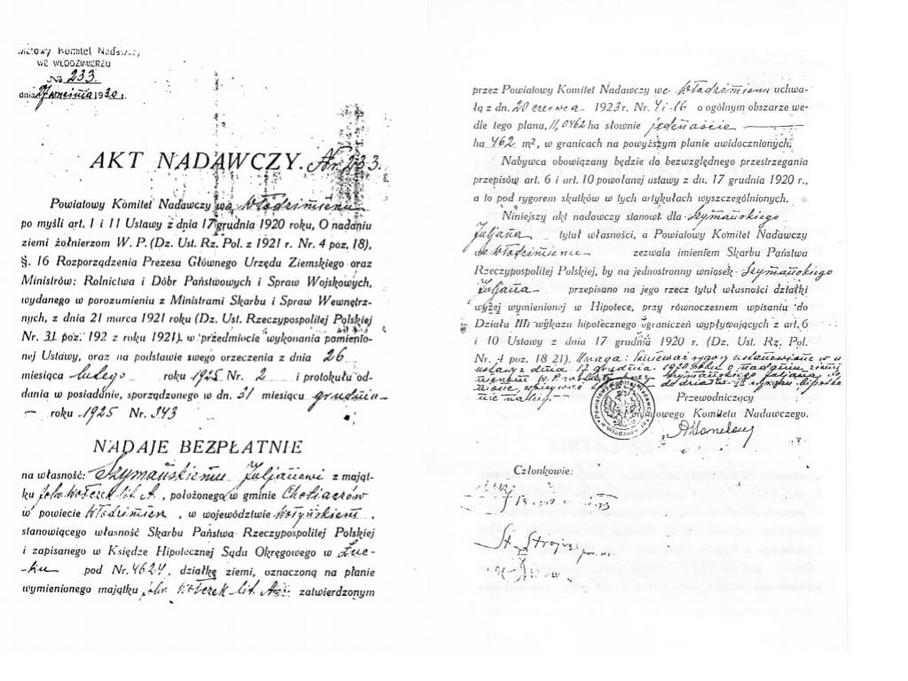 Powiatowy Komitet Nadawczy
WE WŁODZIMIERZU
No 233.
dnia 27 września 1930 r.
AKT NADAWCZY. Nr. 233.
Powiatowy Komitet Nadawczy we Włodzimierzu
po myśli art. 1 i 11 Ustawy z dnia 17 grudnia 1920 roku, O nadaniu
ziemi żołnierzom W. P. (Dz. Ust. Rz. Pol. z 1921 r. Nr. 4 poz. 18),
§. 16 Rozporządzenia Prezesa Głównego Urzędu Ziemskiego oraz
Ministrów: Rolnictwa i Dóbr Państwowych i Spraw Wojskowych,
wydanego w porozumieniu z Ministrami Skarbu i Spraw Wewnętrz-
nych, z dnia 21 marca 1921 roku (Dz. Ust. Rzeczypospolitej Polskiej
Nr. 31 poz. 192 z roku 1921). w przedmiocie wykonania pomienio-
nej Ustawy, oraz na podstawie swego orzeczenia z dnia 26
miesiąca lutego roku 1925 Nr. 2 i protokułu od-
dania w posiadanie, sporządzonego w dn. 31 miesiącu grudnia
— roku 1925 Nr. 343
NADAJE BEZPŁATNIE
na własność: Szymańskiemu Juljanowi z mająt-
ku folw. Wołczek lit. A, położonego w gminie
w powiecie Włodzimierz, w województwie Wołyńskiem,
stanowiącego własność Skarbu Państwa Rzeczypospolitej Polskiej
i zapisanego w Księdze Hipotecznej Sądu Okręgowego w Łuc-
ku pod Nr. 4624, działkę ziemi, oznaczoną na planie
wymienionego majątku folw. Wołczek lit. A zatwierdzonym
przez Powiatowy Komitet Nadawczy we Włodzimierzu uchwa-
łą z dn. 20 czerwca 1923 r. Nr. 4 i 16 o ogólnym obszarze we-
dle tego planu, 11,0462 ha słownie jedenaście —
ha 462 m², w granicach na powyższym planie uwidocznionych.
Nabywca obowiązany będzie do bezwzględnego przestrzegania
przepisów art. 6 i art. 10 powołanej ustawy z dn. 17 grudnia 1920 r.,
a to pod rygorem skutków w tych artykułach wyszczególnionych.
Niniejszy akt nadawczy stanowi dla Szymańskiego
Juljana tytuł własności, a Powiatowy Komitet Nadawczy
we Włodzimierzu zezwala imieniem Skarbu Państwa
Rzeczypospolitej Polskiej, by na jednostronny wniosek Szymańskiego
Juljana przepisano na jego rzecz tytuł własności działki
wyżej wymienionej w Hipotece, przy równoczesnem wpisaniu do
Działu III wykazu hipotecznego ograniczeń wypływających z art. 6
i 10 Ustawy z dn. 17 grudnia 1920 r. (Dz. Ust. Rz. Pol.
Nr. 4 poz. 18 21). Uwaga: ustanowione w
ustawy z dnia 17 grudnia 1920 roku o nadaniu ziemi
W. P. Szymańskiego Juljana
do działu III
nie należy.
Przewodniczący
Powiatowego Komitetu Nadawczego.
Członkowie: